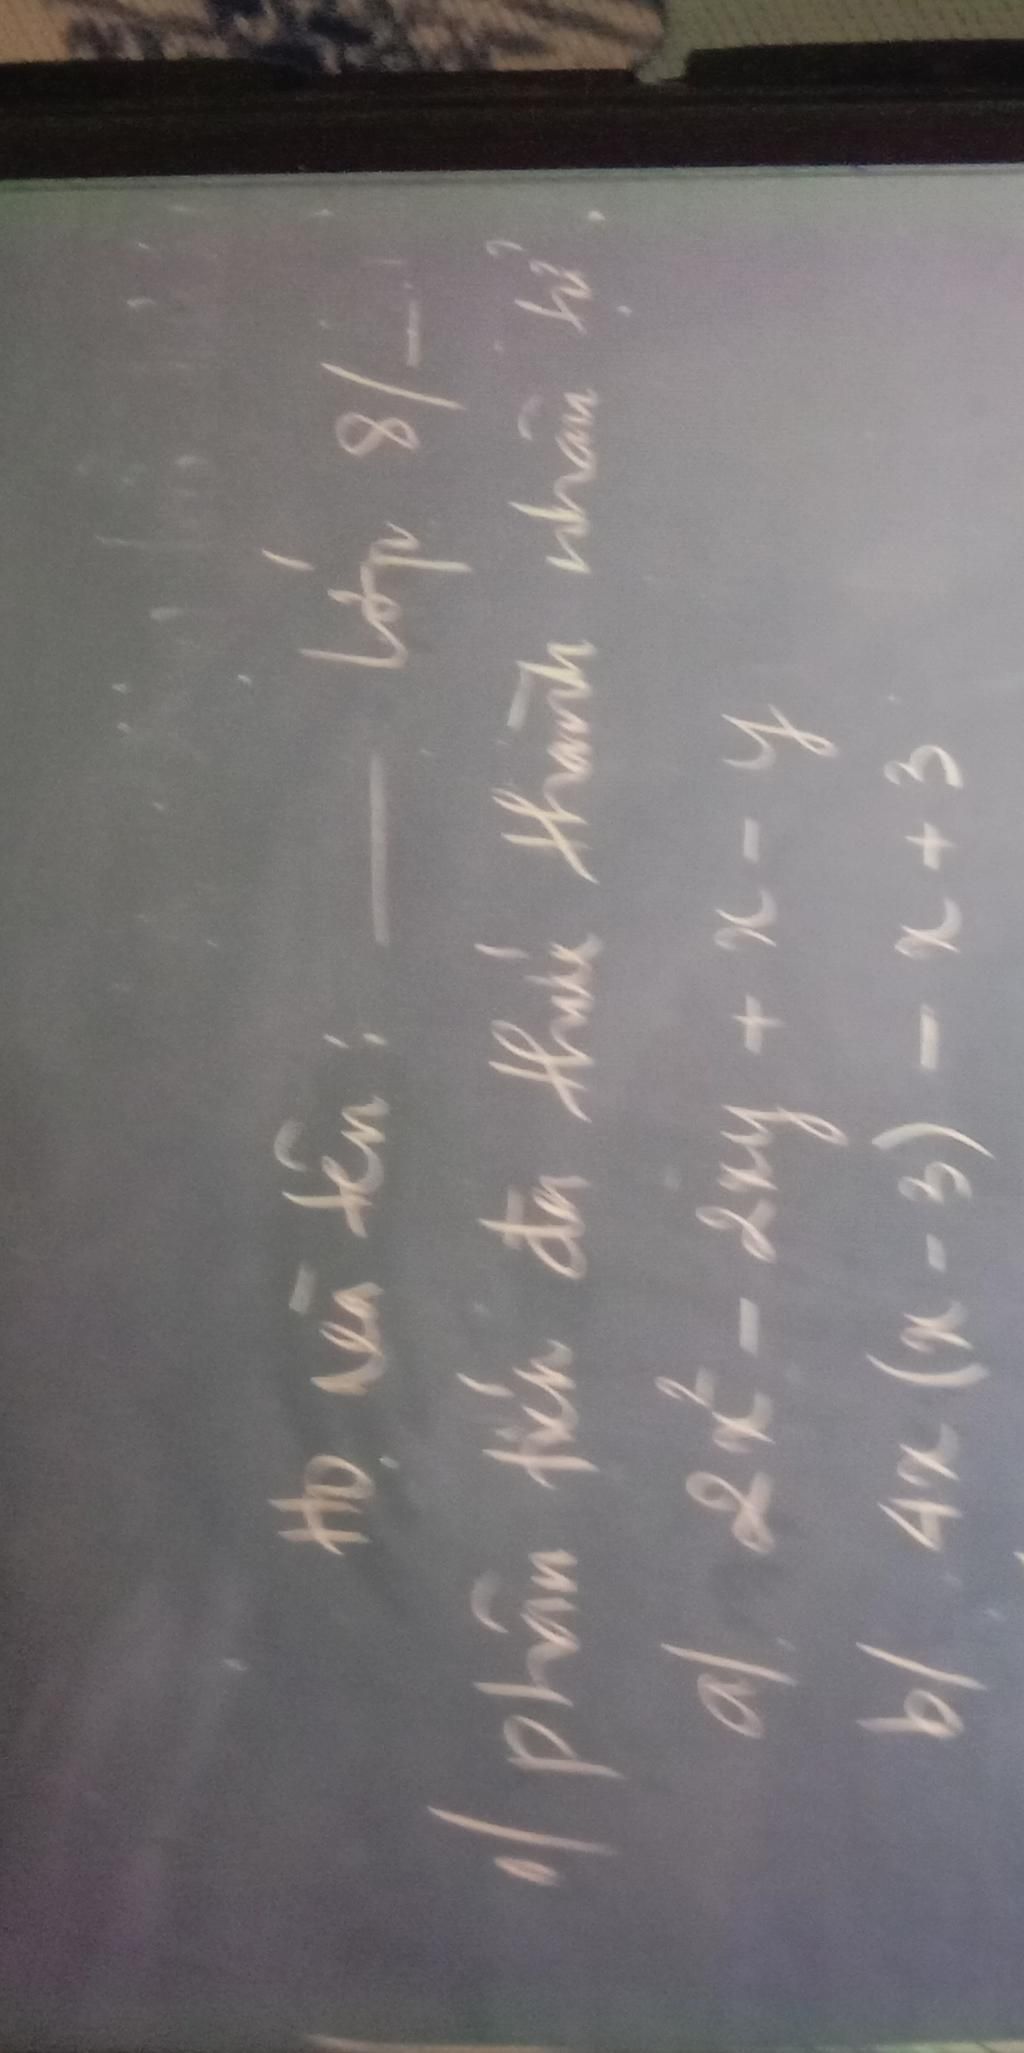 Họ và tên: — Lớp 8/ —
a/ phân tích đa thức thành nhân tử.
a/ 2x² - 2xy + x - y
b/ 4x (x - 3) - x + 3